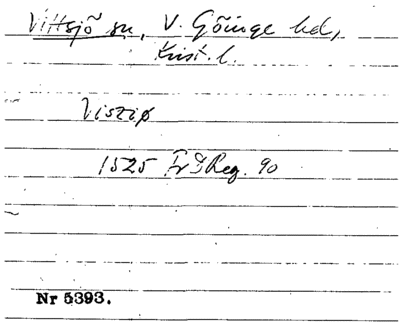 Vittsjö sn, V. Göinge hd,
Krist. l.
Visziø
1525 Fr I Reg. 90
Nr 5393.